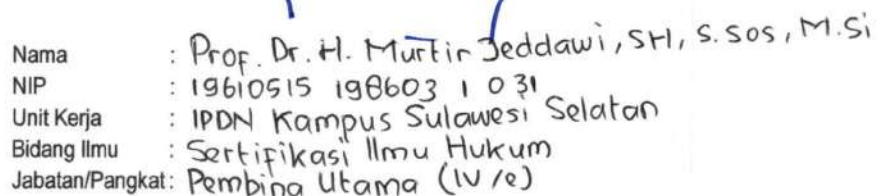 Nama : Prof. Dr. H. Murtir Jeddawi, SH, S.Sos, M.Si
NIP : 19610515 198603 1 031
Unit Kerja : IPDN Kampus Sulawesi Selatan
Bidang Ilmu : Sertifikasi Ilmu Hukum
Jabatan/Pangkat: Pembina Utama (IV/e)